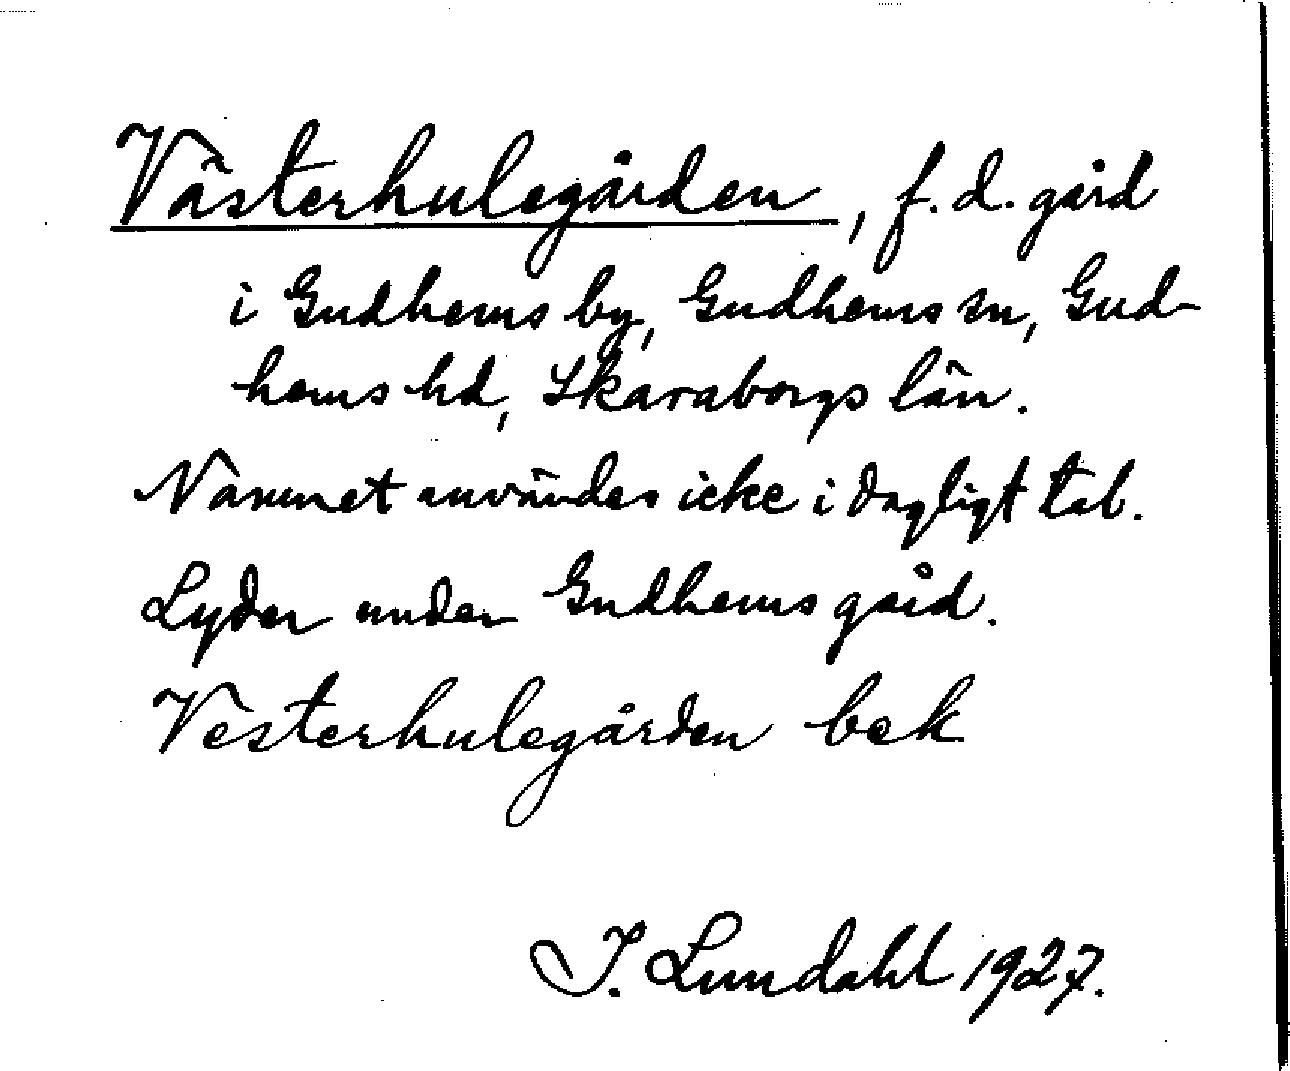 Västerhulegården, f. d. gård
i Gudhems by, Gudhems sn, Gud-
hems hd, Skaraborgs län.
Namnet användes icke i dagligt tal.
Lyder under Gudhems gård.
Vesterhulegården bek
I. Lundahl 1927.